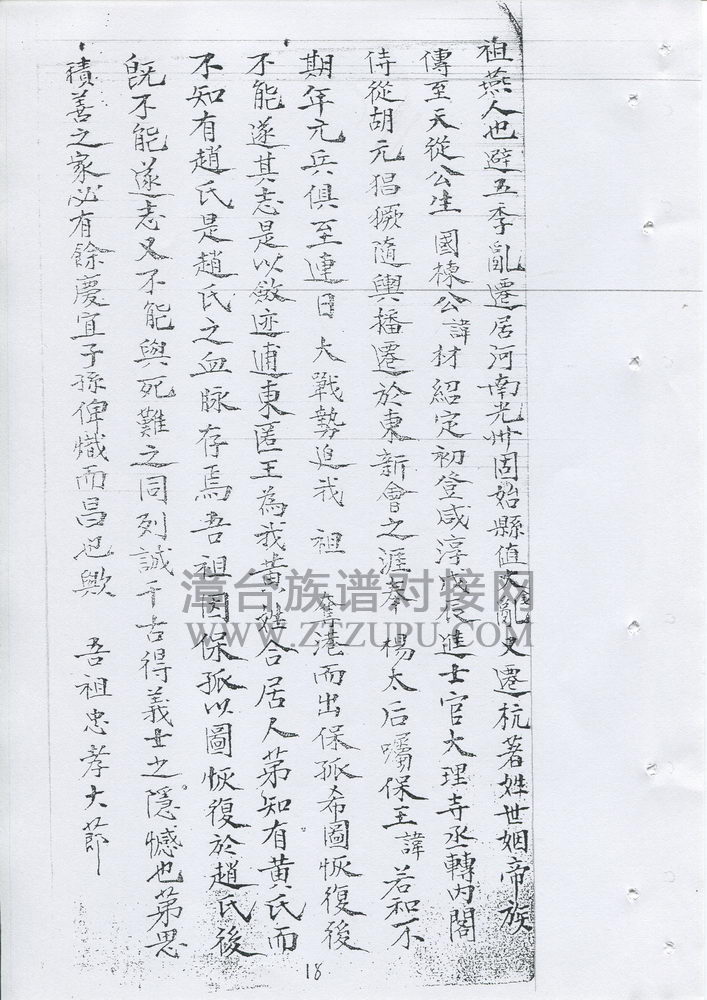 祖燕人也避五季亂遷居河南光州固始縣值大亂又遷杭著姓世姻帝族
傳至天從公生國棟公諱材紹定初登咸淳戊辰進士官大理寺丞轉內閣
侍從胡元猖獗隨輿播遷於東新會之涯奉楊太后囑保王諱若和不
期年元兵俱至連日大戰勢迫我祖奪港而出保孤希圖恢復後
不能遂其志是以斂迹浦東匿王為我黃姓合居人苐知有黃氏而
不知有趙氏是趙氏之血脉存焉吾祖因保孤以圖恢復於趙氏後
既不能遂志又不能與死難之同列誠千古得義士之隱憾也苐思
積善之家必有餘慶宜子孫俾熾而昌也歟 吾祖忠孝大節
18
漳台族谱对接网
WWW.ZTZUPU.COM